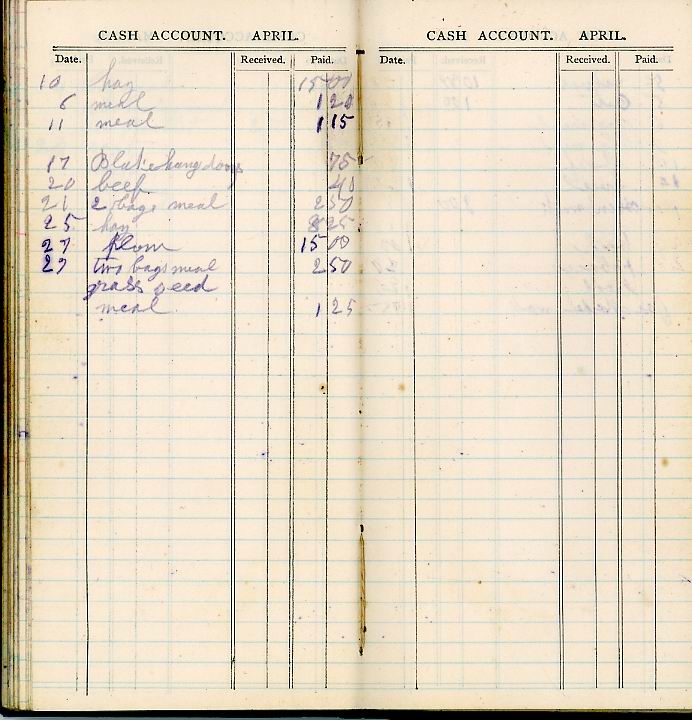 CASH ACCOUNT. APRIL.
Date. Received. Paid.
10 hay 15 00
6 meal 1 20
11 meal 1 15
17 Blake hang doors 75
20 beef 40
21 2 bags meal 2 50
25 hay 8 25
27 plow 15 00
29 two bags meal 2 50
grass seed
meal 1 25
CASH ACCOUNT. APRIL.
Date. Received. Paid.